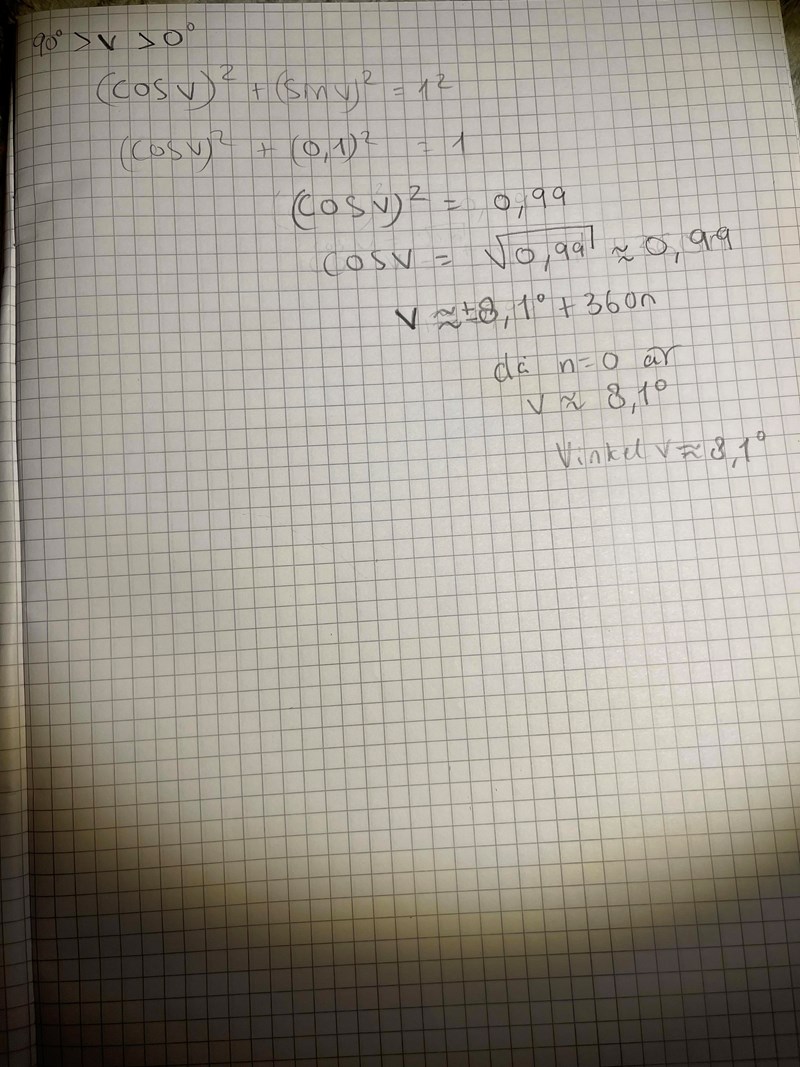 90° > v > 0°
(cos v)² + (sin v)² = 1²
(cos v)² + (0,1)² = 1
(cos v)² = 0,99
cos v = √0,99 ≈ 0,99
v ≈ ±8,1° + 360n
då n=0 är
v ≈ 8,1°
Vinkel v ≈ 8,1°